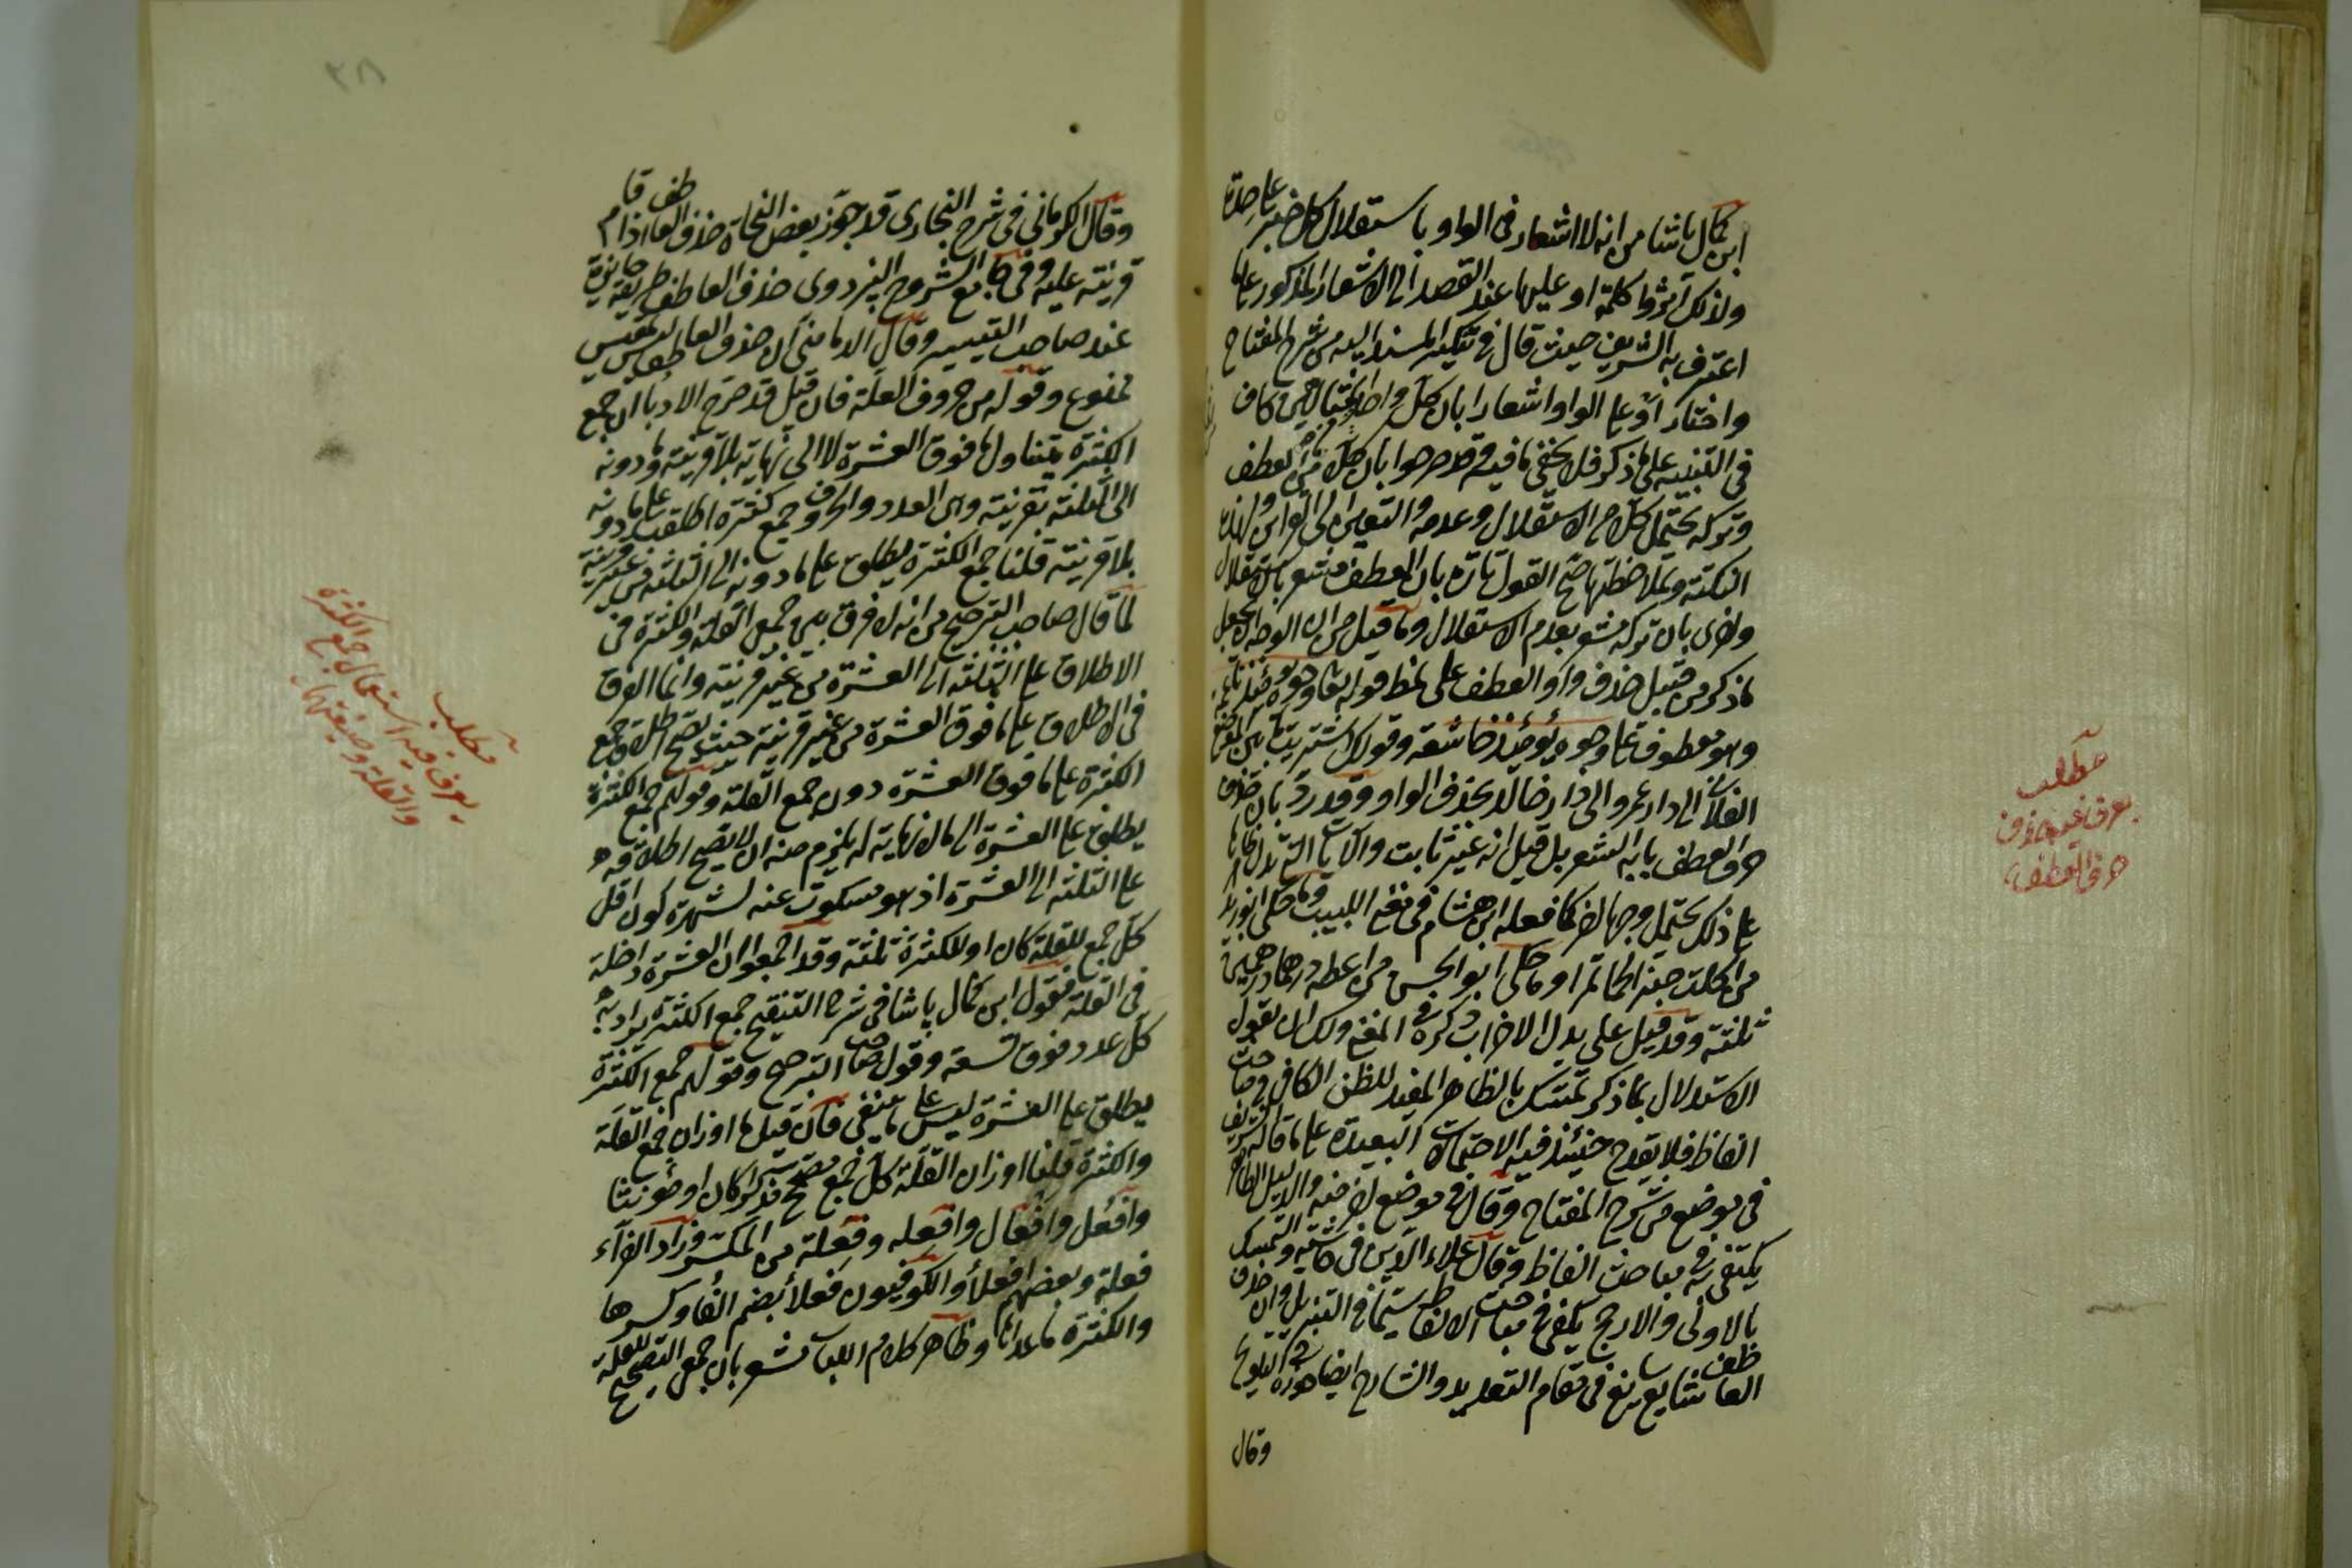 ابن كمال باشا من انه لا اشعار فى الواو باستقلال كل خبر على حدة
ولذلك آثروا كلمة او عليها عند القصد الى الاشعار المذكور على ما
اعترف به الشريف حيث قال فى تنكير المسند اليه من شرح المفتاح
واختار او على الواو اشعارا بان كل واحد كاف
فى التنبيه على ما ذكر فلا يخفى ما فيه وقد صرحوا بان كلا من العطف
وتركه يحتمل كلا من الاستقلال وعدمه والتعيين الى القرائن ولهذه
النكتة وبملاحظتها صح القول تارة بان العطف مشعر بالاستقلال
واخرى بان تركه مشعر بعدم الاستقلال وما قيل من ان الوجه ان يجعل
ما ذكر من قبيل حذف واو العطف على نمط قوله تعالى وجوه يومئذ ناعمة
وهو معطوف على وجوه يومئذ خاشعة وقولك اشتريت
الفلان الى دار عمرو الى دار خالد بحذف الواو وقد رد بان حذف
حرف العطف بابه الشعر بل قيل انه غير ثابت والآيات التى تدل ظاهرها
على ذلك يحتمل وجها اخر كما فعله ابن هشام فى مغنى اللبيب وما حكى ابو زيد
من اكلت خبزا لحما تمرا وما حكى ابو الحسن من اعطه درهما درهمين
ثلثة وقد قيل على بدل الاضراب ذكره فى المغنى ولك ان تقول
الاستدلال بما ذكر تمسك بالظاهر المفيد للظن الكافى فى مباحث
الفاظ فلا يقدح حينئذ فيه الاحتمالات البعيدة على ما قاله الشريف
فى موضع من شرح المفتاح وقال فى موضع اخر منه والدليل الظاهر
يكتفى به فى مباحث الفاظ وقال علاء الدين فى حاشيته والتمسك
بالاولى والارجح يكفى فى مباحث الالفاظ سيما فى التنزيل وان حذف
العاطف شايع سايغ فى مقام التعديد والشارح ايضا جوزه فى التلويح
وقال
مطلب
يعرف فيه حذف
حرف العطف
وقال الكرمانى فى شرح البخارى قد جوز بعض النحاة حذف العاطف اذا قام
قرينة عليه وفى جامع الشروح البزدوى حذف العاطف طريقة جايزة
عند صاحب التيسير وقال الدمامينى ان حذف العاطف ليس بمقيس
ممنوع وقوله من حروف العلة فان قيل قد صرح الادبا ان جمع
الكثرة يتناول ما فوق العشرة لا الى نهاية بلا قرينة وما دونه
الى الثلثة بقرينة وان العدد والحروف جمع كثرة اطلقت على ما دونه
بلا قرينة قلنا جمع الكثرة يطلق على ما دونه الى الثلثة من غير قرينة
لما قال صاحب الترضيح من انه لا فرق بين جمعى القلة والكثرة فى
الاطلاق على الثلثة الى العشرة من غير قرينة وانما الفرق
فى الاطلاق على ما فوق العشرة من غير قرينة حيث يصح اطلاق جمع
الكثرة على ما فوق العشرة دون جمع القلة وقولهم جمع الكثرة
يطلق على العشرة الى ما لا نهاية له يلزم منه ان لا يصح اطلاقه
على الثلثة الى العشرة اذ هو مسكوت عنه لشهرة كون اقل
كل جمع للقلة كان او للكثرة ثلثة وقد اجمعوا ان العشرة داخلة
فى القلة فقول ابن كمال باشا فى شرح التنقيح جمع الكثرة يراد به
كل عدد فوق تسعة وقول صاحب الترضيح وقولهم جمع الكثرة
يطلق على العشرة ليس على ما ينبغى فان قيل ما اوزان جمع القلة
والكثرة قلنا اوزان القلة كل جمع تصحيح مذكرا كان او مؤنثا
وافعل وافعال وافعلة وفعلة من المكسر وزاد الفراء
فعلة وبعضهم افعلاء والكوفيون فعلا بضم الفا وكسرها
والكثرة ما عداها وظاهر كلام اللباب مشعر بان جمعى التصحيح للقلة
مطلب
يعرف فيه استعمال جمع الكثرة
والقلة وصيغتهما